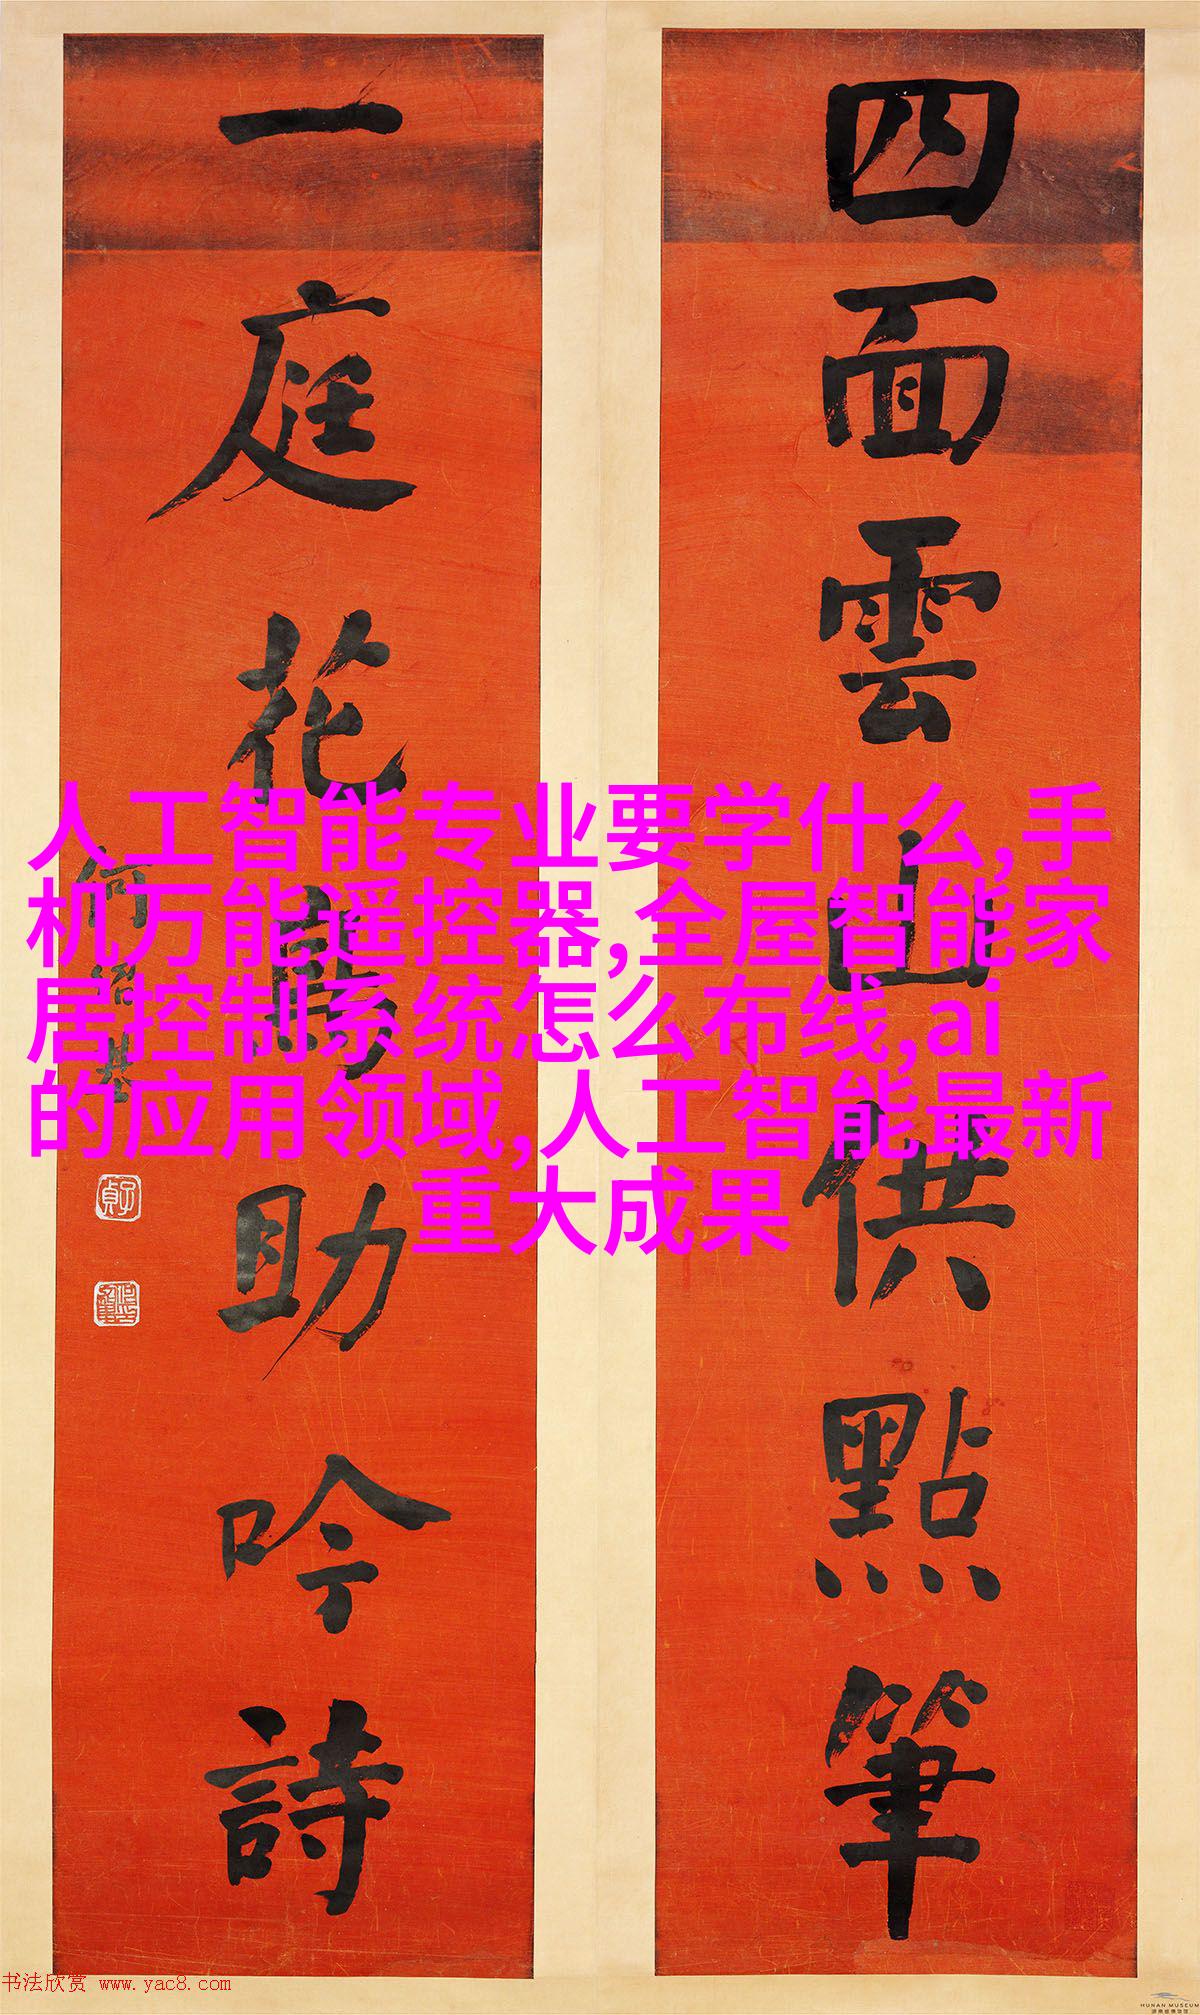 四面雲山供點筆
一庭花鳥助吟詩
何紹基
人工智能专业要学什么,手
机万能遥控器,全屋智能家
居控制系统怎么布线,ai
的应用领域,人工智能最新
重大成果
书法欣赏 www.yac8.com
HUNAN MUSEUM